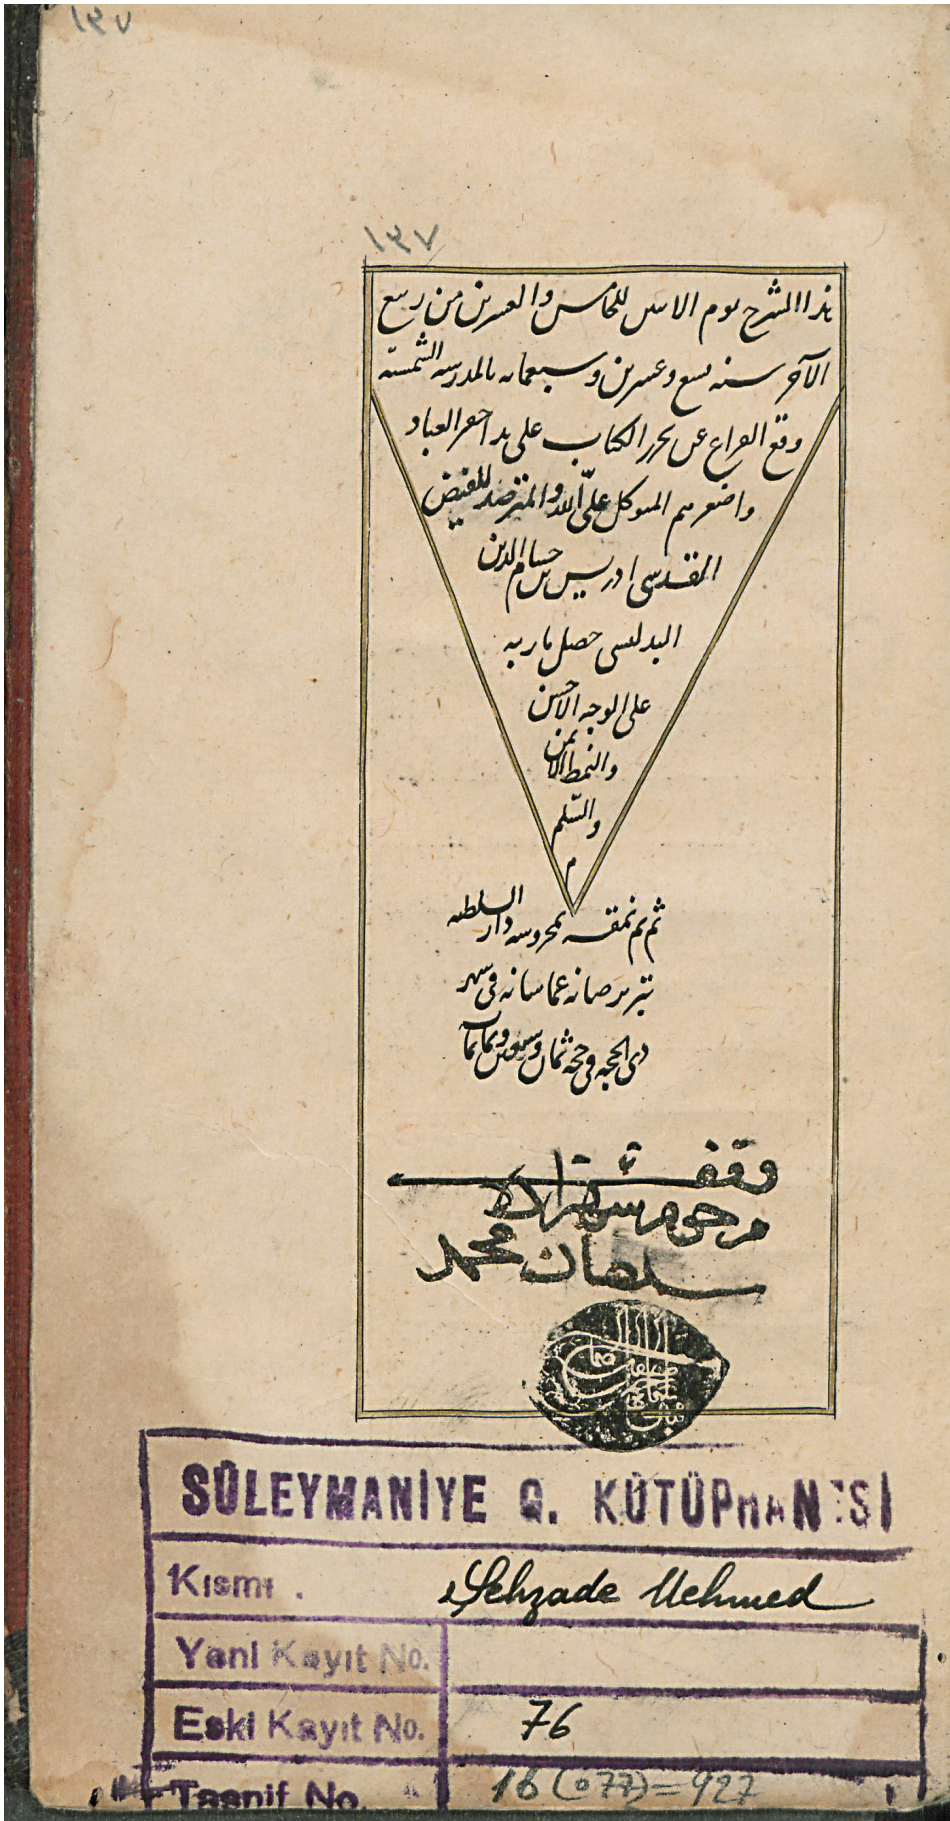 ١٣٧
١٣٧
هذا الشرح يوم الاثنين الخامس والعشرين من ربيع
الآخر سنه تسع وعشرين وسبعمائه بالمدرسه الشمسيّه
وقع الفراغ عن تحرير الكتاب على يد احقر العباد
واضعفهم المتوكل على اللّه والمترصد للفيض
المقدسى ادريس بن حسام الدين
البدليسى حصل مآربه
على الوجه الاحسن
والنمط الايمن
والسّلم
م
ثم تم نمقه بمحروسه دار السلطنه
تبريز صانه عما شانه فى شهر
ذى الحجه حجه ثمان وسبعين وثمانمائه
وقف
مرحوم شهزاده
سلطان محمد
SÜLEYMANİYE G. KÜTÜPHANESİ
Kısmı . Şehzade Mehmed
Yeni Kayıt No.
Eski Kayıt No. 76
Tasnif No. 16 (077)=927